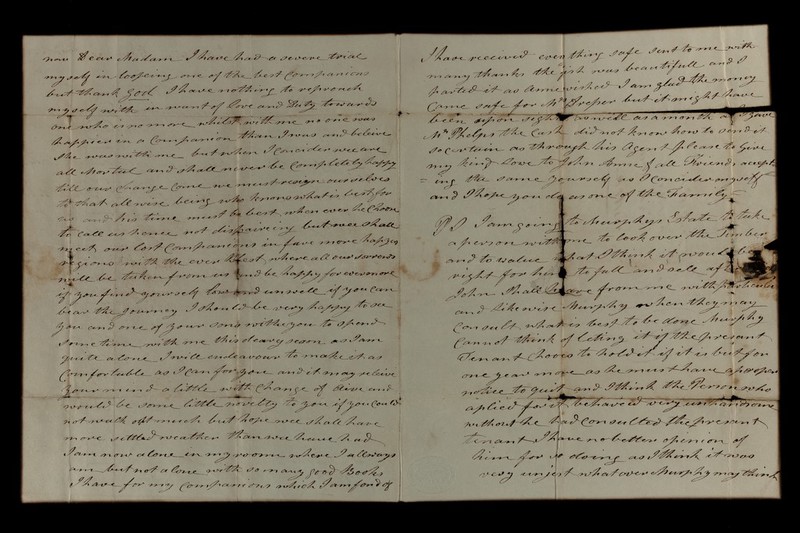 now Dear Madam I have had a severe trial
my self in looseing one of the best Companions
but thank god I have nothing to reproach
my self with in want of Love and Duty towards
one who is no more whilst with me no one was
happier in a Companion than I was and beleive
She was with me but when I Concider wee are
all Mortal and shall never be Completely happy
till our Change Come we must resign ourselves
to that all wise being who knows what is best for
us and his time must be best when ever he Chose
to Call us hence not dispaireing but wee shall
meet our Lost Companions in fare more happy
regions with the ever blest where all our sorrows
will be taken from us and be happy for evermore
if you find yourself low and unwell if you Can
bear the Journey I should be very happy to see
you and one of your sons with you to spend
some time with me this dreary season as I am
quite alone I will endeavour to make it as
Comfortable as I Can for you and it may releive
your mind a little with Change of and
would be some little novelty to you if you Could
not walk out much but hope wee shall have
more settled weather than wee have had
I am now alone in my room where I allways
am but not alone with so many good Books
I have for my Companions which I am fond of
I have received every thing safe sent to me with
many thanks the fish was beautifull and I
parted it as Anne wished I am glad the money
Came safe for Mr but it might have
been upon sight as well as a month as I gave
Mr Phelps the Cash did not know how to send it
so certain as through his Agent please to give
my kind Love to John Anne & all Friends accept
ing the same yourself as I Concider myself
and I hope you do as one of the Family
PS I am going to Murphys Estate to take
a person with me to look over the Timber
and to value what I think it would be
right for him to fall and sell
John shall from me with
and likewise Murphy when they may
Consult what is best to be done Murphy
Cannot think of leting it if the present
Tenant Chooses to hold it if it is but for
one year more as he must have a proper
notice to quit and I think the Person who
aplied for it behaved very unhandsome
without he had Consulted the present
tenant I have no better opinion of
him for so doing as I think it was
very unjust whatever Murphy may think